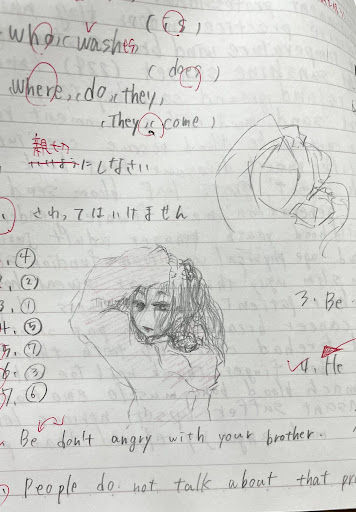 ( is )
who, washes
( does )
where, do, they,
They, come
親切
にしなさい
さわってはいけません
④
②
3. ①
4. ⑤
5. ⑦
6. ③
7. ⑥
3. Be
4. He
Be don't angry with your brother.
People do not talk about that